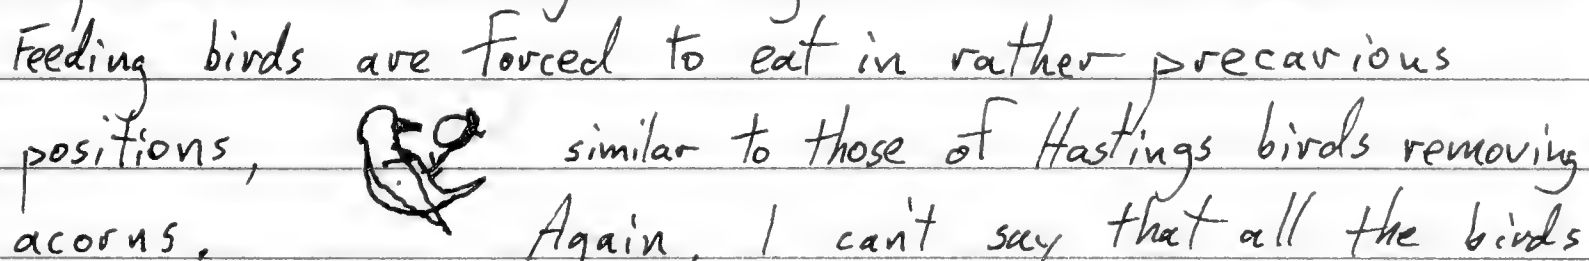 Feeding birds are forced to eat in rather precarious
positions, similar to those of Hastings birds removing
acorns. Again, I can't say that all the birds